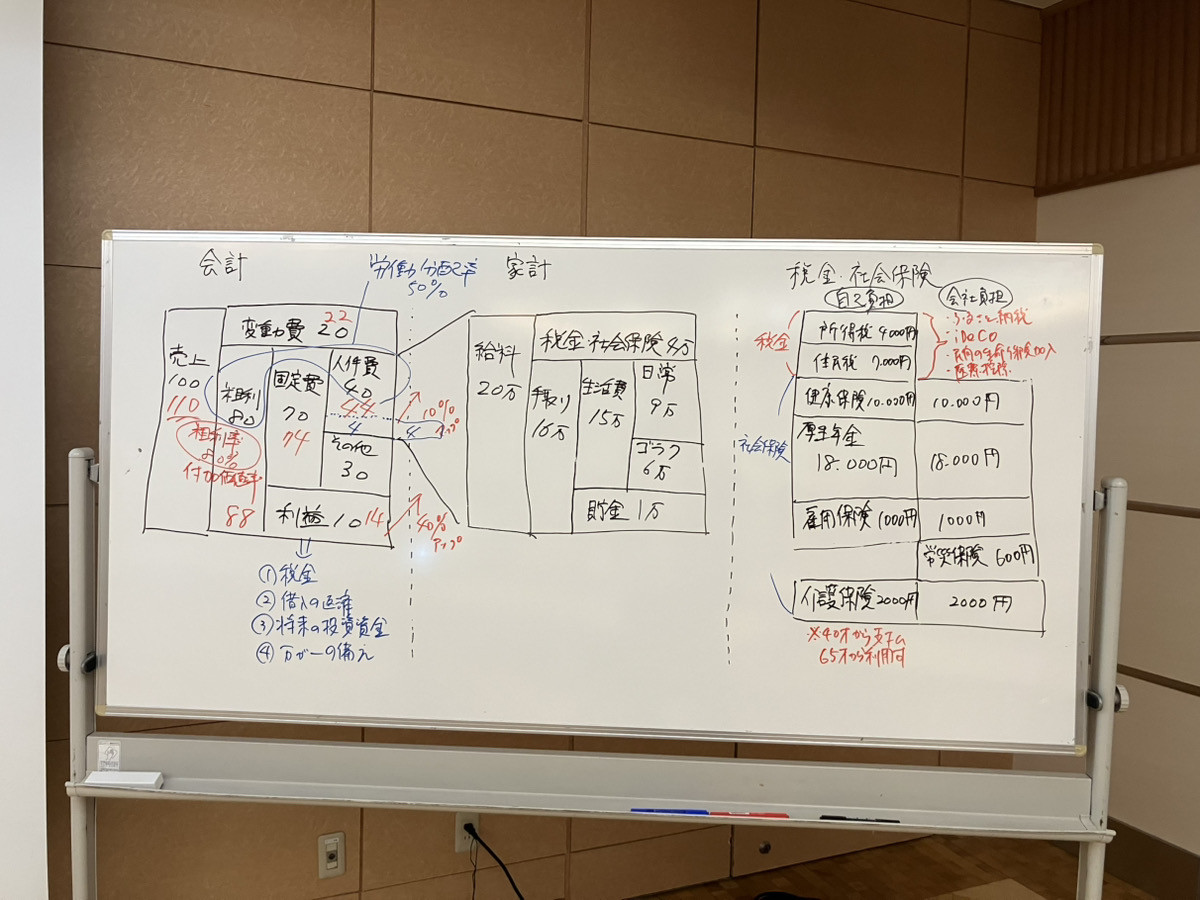 会計
労働分配率
50%
変動費 20
22
売上
100
110
粗利
80
粗利率
80%
付加価値率
88
固定費
70
74
人件費
40
44
4
4
10%
アップ
その他
30
利益 10 14
40%
アップ
①税金
②借入の返済
③将来の投資資金
④万が一の備え
家計
給料
20万
税金・社会保険 4万
手取り
16万
生活費
15万
日常
9万
ゴラク
6万
貯金 1万
税金・社会保険
自己負担
会社負担
税金
所得税 4000円
住民税 7.000円
・ふるさと納税
・iDeCo
・民間の生命保険加入
・医療控除
社会保険
健康保険 10.000円
10.000円
厚生年金
18.000円
18.000円
雇用保険 1000円
1000円
労災保険 600円
介護保険 2000円
2000円
※40才から支払
65才から利用可